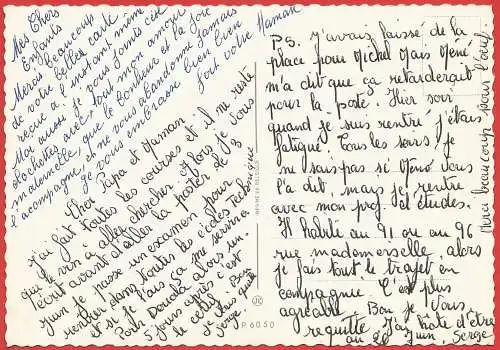 Mes Chers
Enfants
Merci beaucoup
de votre belle carte
reçue à l'instant même
Moi aussi je vous joints c'est
clochettes avec tout mon amour
maternelle, que le bonheur et la joie
l'accompagne, et ne vous abandonne jamais
Je vous embrasse bien bien
fort votre Maman
Cher Papa et Maman
J'ai fait toutes les courses et il ne reste
que le vin à aller chercher. Alors je vous
écrit avant d'aller la porter. Le 3
Juin je passe un examen pour
rentrer dans toutes les écoles Techniques
et si je l'ais ça me servira.
Porte Dorée alors un
5 jours après c'est
le certif. Bon
je vous quitte
Serge.
PS. j'avais laissé de la
place pour Michel Mais Mémé
m'a dit que ça retarderait
pour la poste. Hier soir
quand je suis rentré j'étais
fatigué. Tous les soirs je
ne sais pas si Mémé vous
l'a dit, mais je rentre
avec mon prof d'études.
Il habite au 91 ou au 96
rue mademoiselle, alors
je fais tout le trajet en
compagnie. C'est plus
agréable. Bon je vous
requitte. J'ai hâte d'être
au 20 Juin. Serge
Merci beaucoup pour l'œuf
P 6050